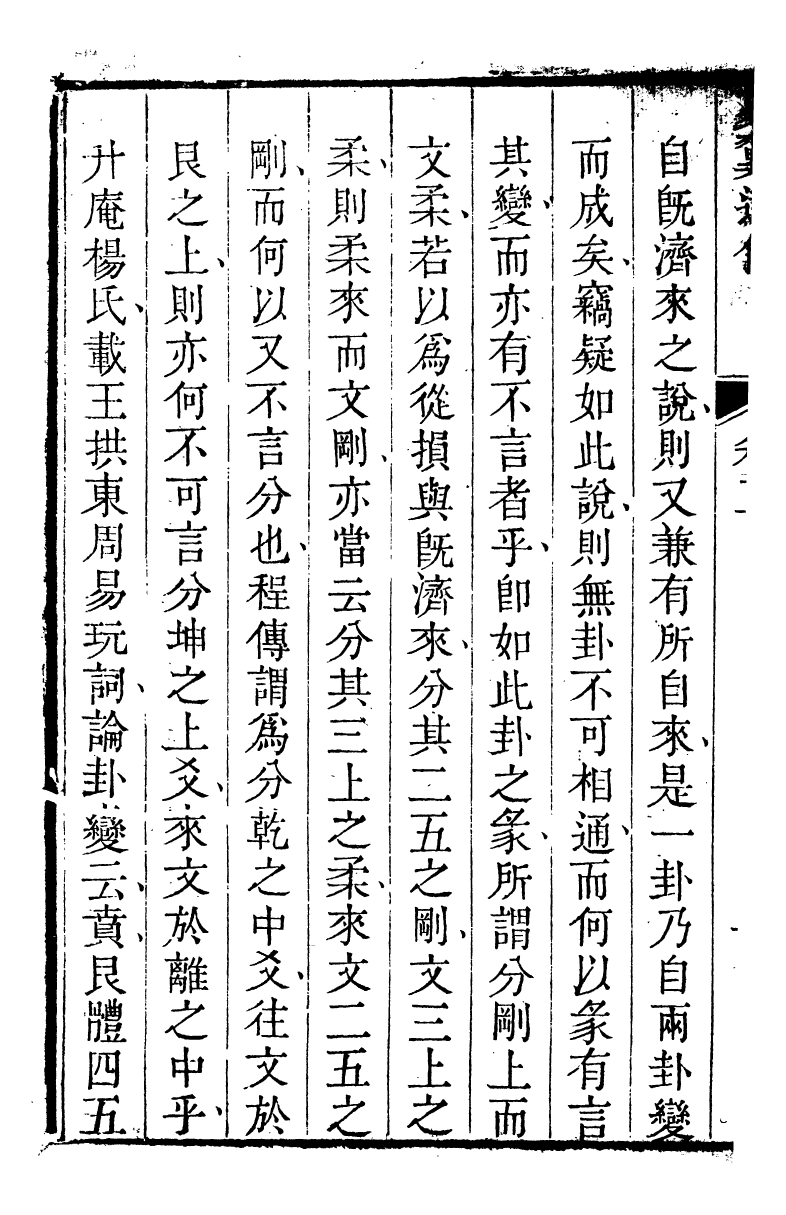 自旣濟來之說、則又兼有所自來、是一卦乃自兩卦變
而成矣、竊疑如此說、則無卦不可相通、而何以彖有言
其變、而亦有不言者乎、卽如此卦之彖、所謂分剛上而
文柔、若以爲從損與旣濟來、分其二五之剛、文三上之
柔、則柔來而文剛、亦當云分其三上之柔、來文二五之
剛、而何以又不言分也、程傳謂爲分乾之中爻、往文於
艮之上、則亦何不可言分坤之上爻、來文於離之中乎、
升庵楊氏、載王拱東周易玩詞、論卦變云、賁、艮體四五